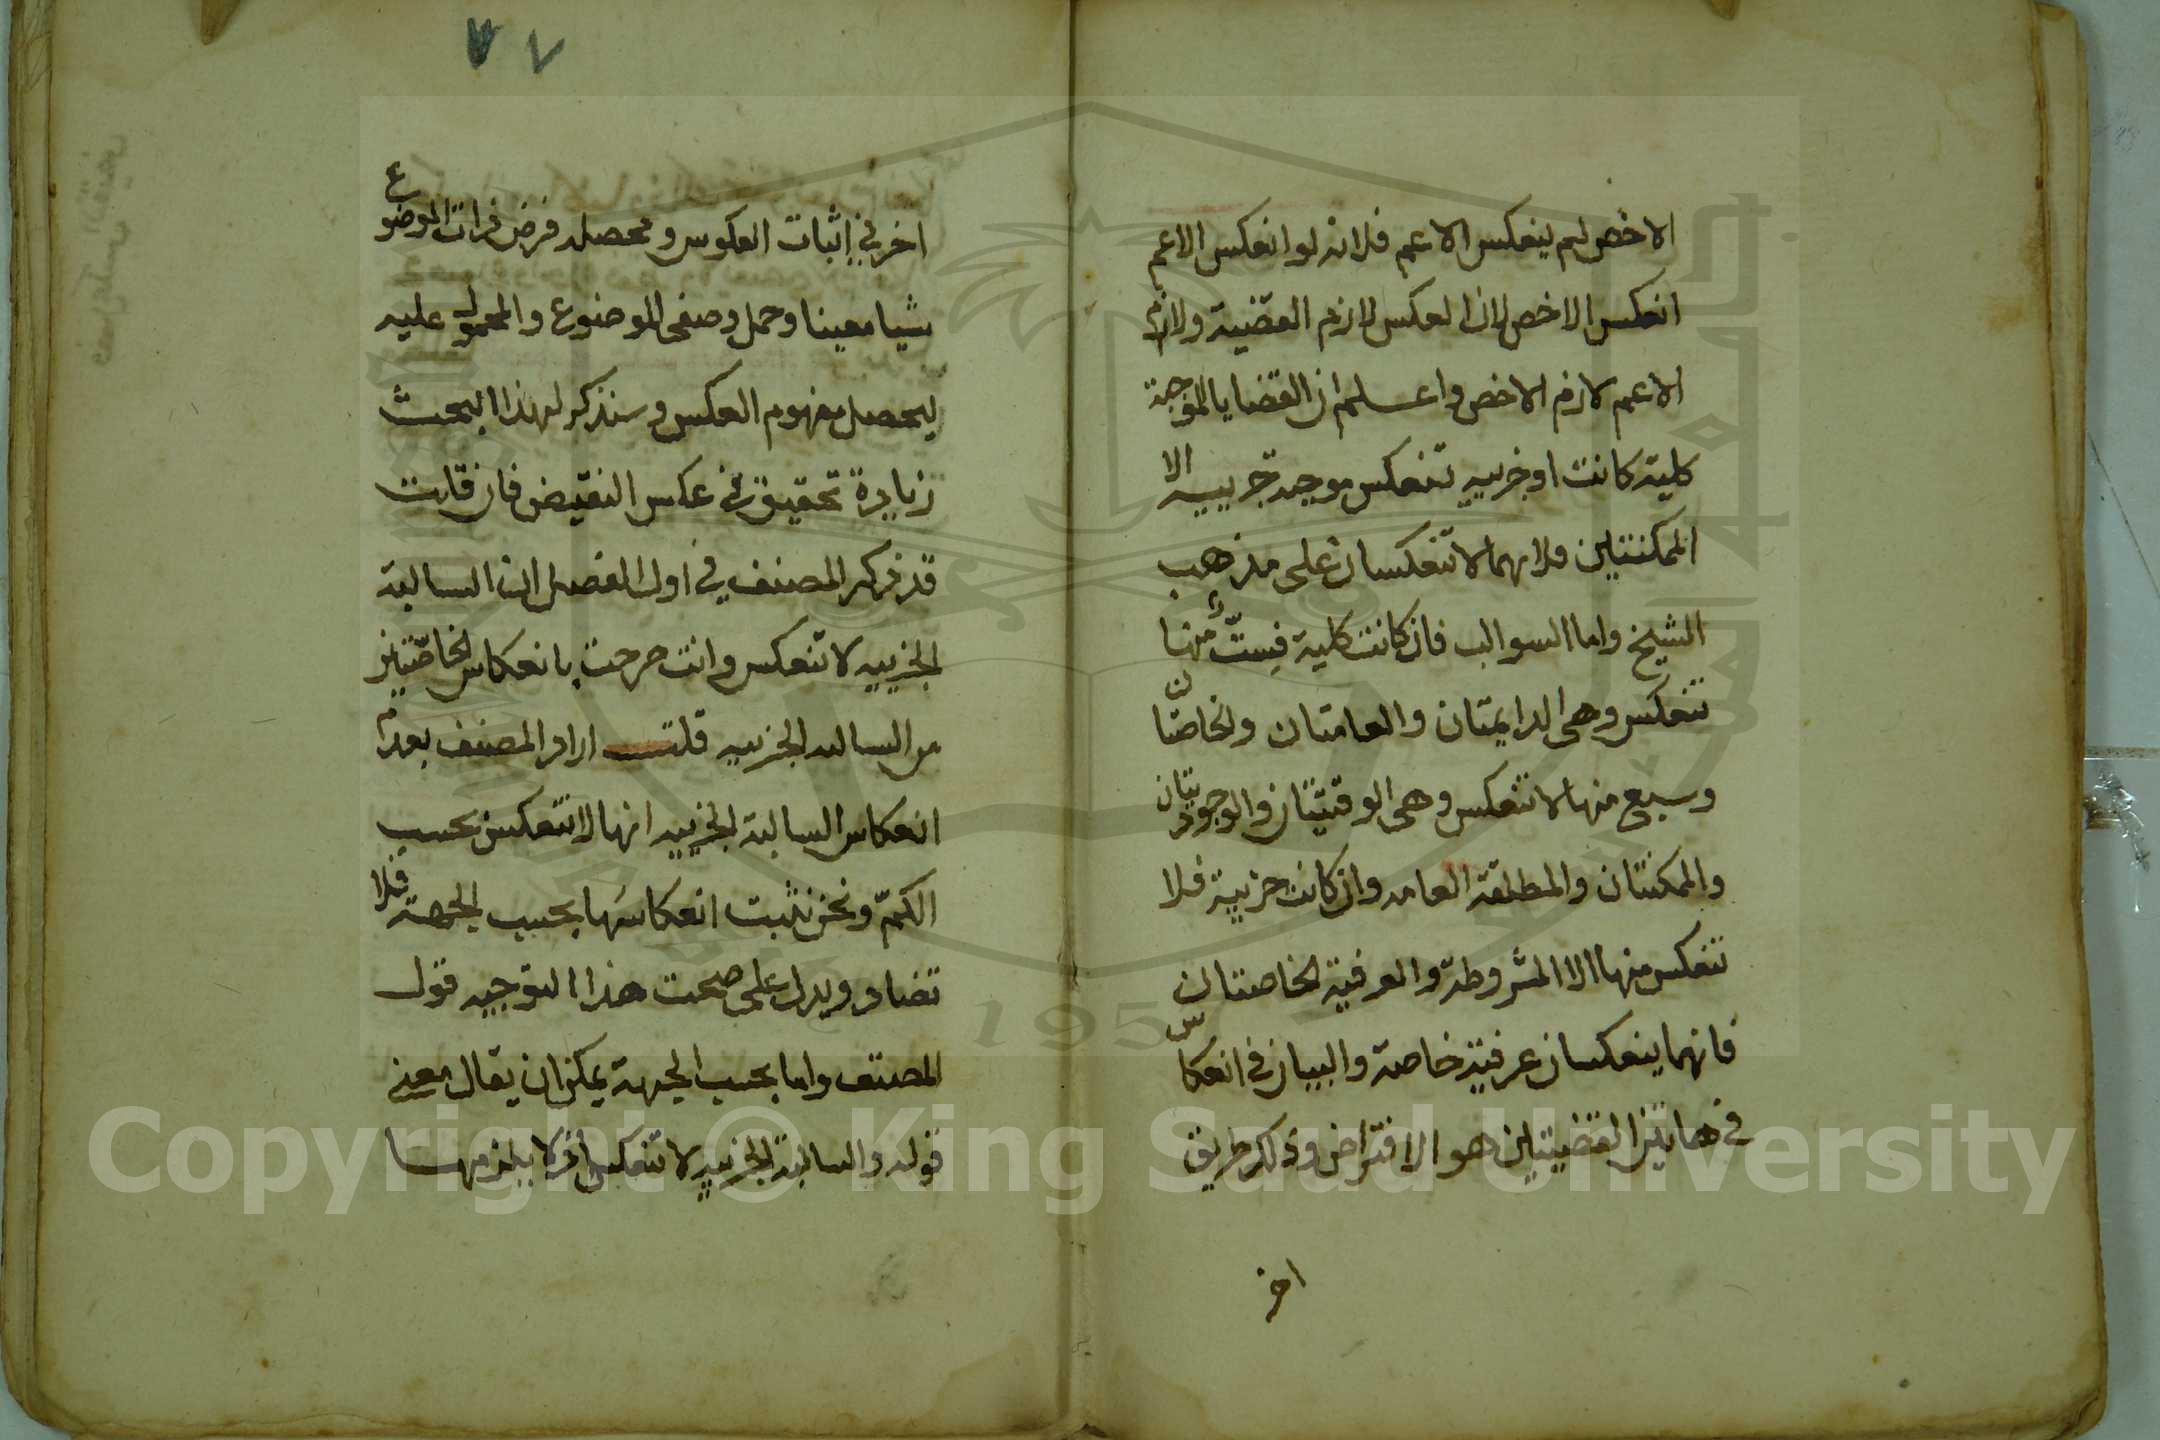 الاخص لم ينعكس الاعم فلانه لو انعكس الاعم
انعكس الاخص لان العكس لازم القضية ولازم
الاعم لازم الاخص واعلم ان القضايا الموجبة
كلية كانت او جزييه تنعكس موجبة جزييه الا
الممكنتين فلانهما لا تنعكسان على مذهب
الشيخ واما السوالب فان كانت كلية فست منها
تنعكس وهى الدايمتان والعامتان والخاصتان
وسبع منها لا تنعكس وهى الوقتيتان والوجوديتان
والممكنتان والمطلقة العامه وان كانت جزيية فلا
تنعكس منها الا المشروطة والعرفية الخاصتان
فانهما ينعكسان عرفية خاصة والبيان فى انعكاس
فى هاتين القضيتين هو الافتراض وذلك طريق
اخر
٧ ٧
اخر فى إثبات العكوس ومحصله فرض ذات الموضوع
شيا معينا وحمل وصفى الموضوع والمحمول عليه
ليحصل مفهوم العكس وسنذكر لهذا البحث
زيادة تحقيق فى عكس النقيض فان قلت
قد ذكر المصنف فى اول الفصل ان السالبة
الجزييه لا تنعكس وانت صرحت بانعكاس الخاصتين
من السالبه الجزييه قلت اراد المصنف بعدم
انعكاس السالبة الجزييه انها لا تنعكس بحسب
الكم ونحن نثبت انعكاسها بحسب الجهة فلا
تضاد ويدل على صحت هذا التوجيه قول
المصنف واما بحسب الجهة يمكن ان يقال معنى
قوله والسالبة الجزييه لا تنعكس اذ لا يلزمها
Copyright © King Saud University
1957